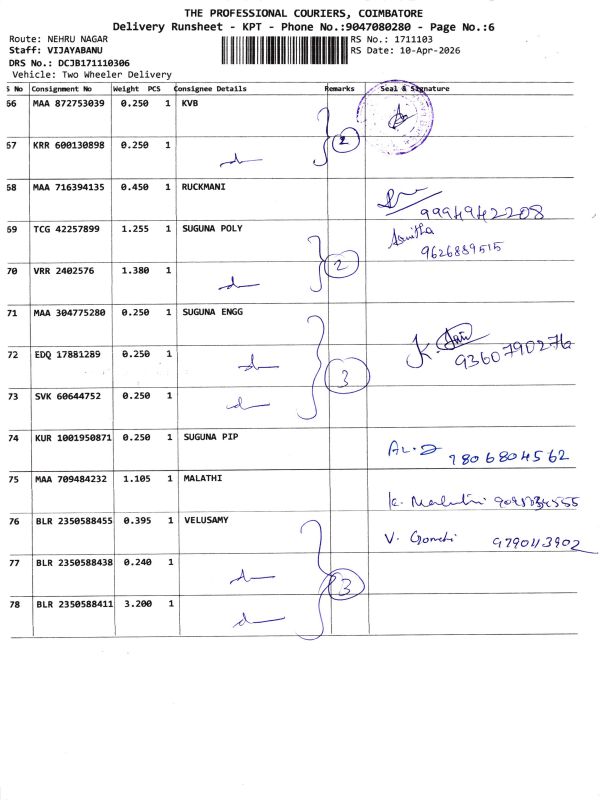 THE PROFESSIONAL COURIERS, COIMBATORE
Delivery Runsheet - KPT - Phone No.:9047080280 - Page No.:6
Route: NEHRU NAGAR RS No.: 1711103
Staff: VIJAYABANU RS Date: 10-Apr-2026
DRS No.: DCJB171110306
Vehicle: Two Wheeler Delivery
S No Consignment No Weight PCS Consignee Details Remarks Seal & Signature
66 MAA 872753039 0.250 1 KVB
67 KRR 600130898 0.250 1 2
68 MAA 716394135 0.450 1 RUCKMANI
9994942208
69 TCG 42257899 1.255 1 SUGUNA POLY
9626889515
70 VRR 2402576 1.380 1 2
71 MAA 304775280 0.250 1 SUGUNA ENGG
72 EDQ 17881289 0.250 1 3 9360790276
73 SVK 60644752 0.250 1
74 KUR 1001950871 0.250 1 SUGUNA PIP
7806804562
75 MAA 709484232 1.105 1 MALATHI
K. Malathi
76 BLR 2350588455 0.395 1 VELUSAMY
V. Gomathi
77 BLR 2350588438 0.240 1 3
78 BLR 2350588411 3.200 1